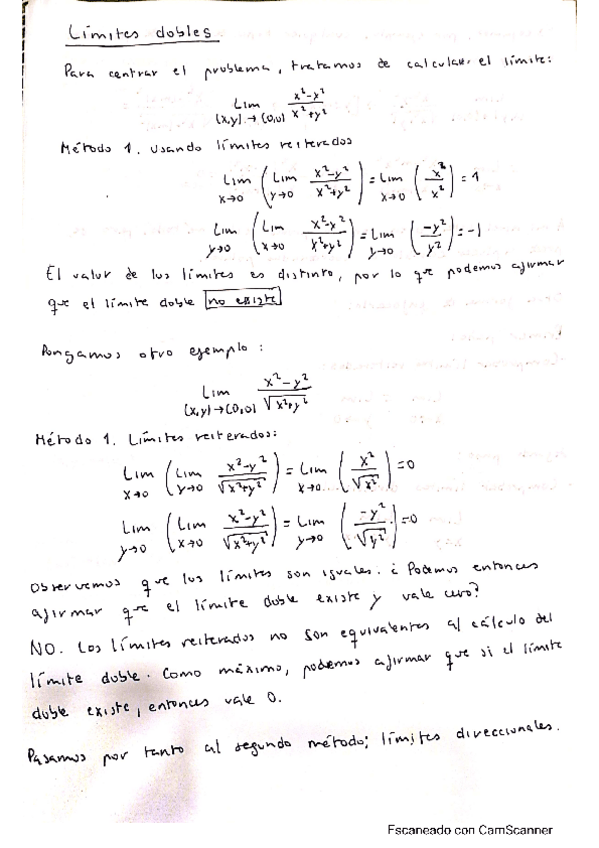 Límites dobles
Para centrar el problema, tratamos de calcular el límite:
Lim (x,y)→(0,0) x²-y² / x²+y²
Método 1. Usando límites reiterados
Lim x→0 (Lim y→0 x²-y² / x²+y²) = Lim x→0 (x² / x²) = 1
Lim y→0 (Lim x→0 x²-y² / x²+y²) = Lim y→0 (-y² / y²) = -1
El valor de los límites es distinto, por lo que podemos afirmar
que el límite doble no existe
Pongamos otro ejemplo:
Lim (x,y)→(0,0) x²-y² / √x²+y²
Método 1. Límites reiterados:
Lim x→0 (Lim y→0 x²-y² / √x²+y²) = Lim x→0 (x² / √x²) = 0
Lim y→0 (Lim x→0 x²-y² / √x²+y²) = Lim y→0 (-y² / √y²) = 0
Observemos que los límites son iguales. ¿Podemos entonces
afirmar que el límite doble existe y vale cero?
NO. Los límites reiterados no son equivalentes al cálculo del
límite doble. Como máximo, podemos afirmar que si el límite
doble existe, entonces vale 0.
Pasamos por tanto al segundo método; límites direccionales.
Escaneado con CamScanner